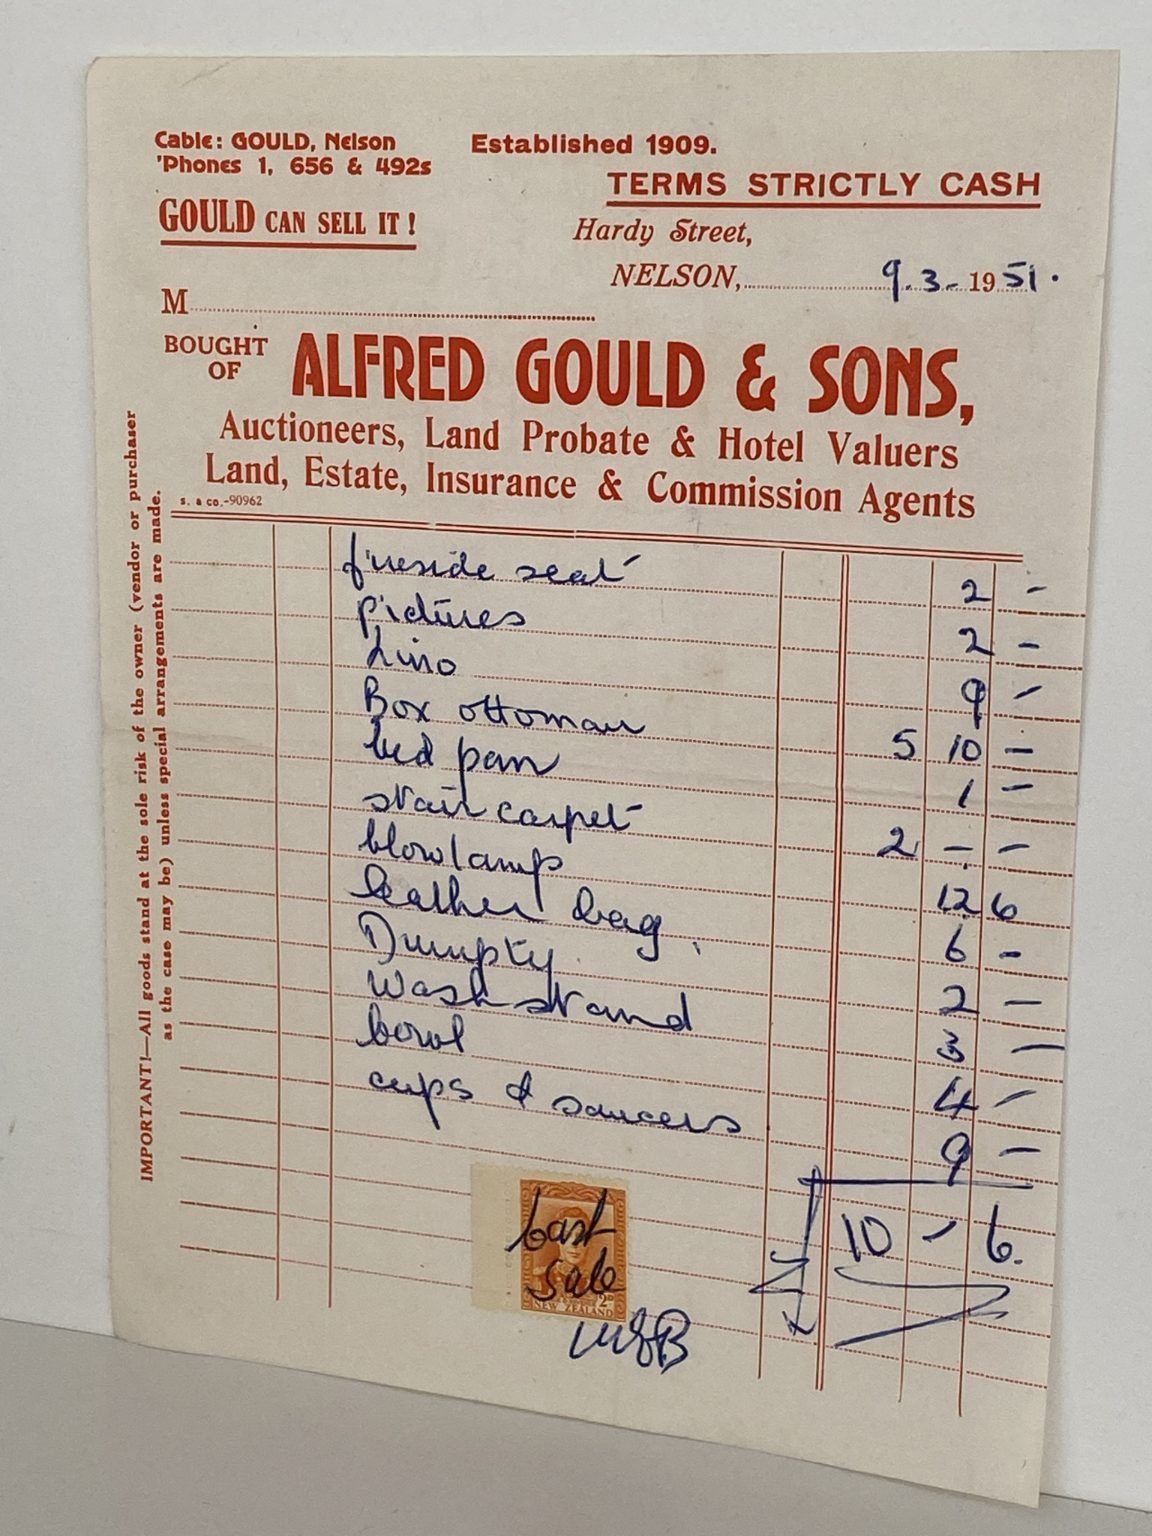 Cable: GOULD, Nelson
'Phones 1, 656 & 492s
Established 1909.
TERMS STRICTLY CASH
GOULD CAN SELL IT!
Hardy Street,
NELSON, 9.3. 1951.
M
BOUGHT OF
ALFRED GOULD & SONS,
Auctioneers, Land Probate & Hotel Valuers
Land, Estate, Insurance & Commission Agents
S. & CO.-90962
fireside seat 2 -
pictures 2 -
Lino 9 -
Box ottoman 5 10 -
bed pan 1 -
stair carpet 2 - -
blowlamp 12 6
leather bag 6 -
Dumpty 2 -
Wash stand 3 -
bowl 4 -
cups & saucers 9 -
£ 10 - 6.
Cash
Sale
2D
NEW ZEALAND
IMPORTANT!—All goods stand at the sole risk of the owner (vendor or purchaser
as the case may be) unless special arrangements are made.